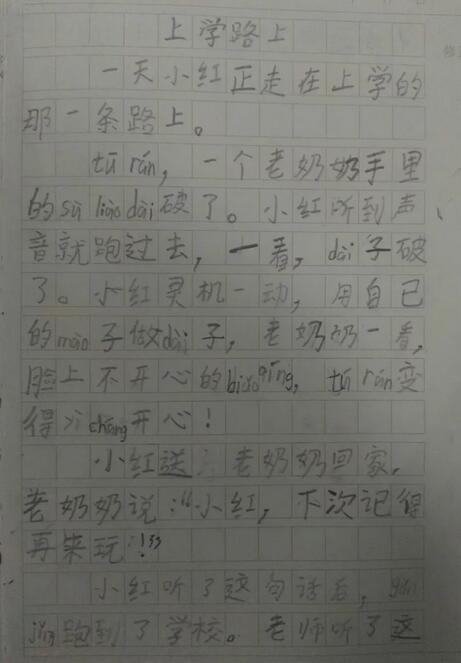 上学路上
一天小红正走在上学的
那一条路上。
tū rán，一个老奶奶手里
的sù liào dài破了。小红听到声
音就跑过去，一看，dài子破
了。小红灵机一动，用自己
的mào子做dài子，老奶奶一看，
脸上不开心的biǎo qíng，tū rán变
得 cháng开心！
小红送老奶奶回家，
老奶奶说：“小红，下次记得
再来玩！”
小红听了这句话后，gǎn
jǐng跑到了学校。老师听了这